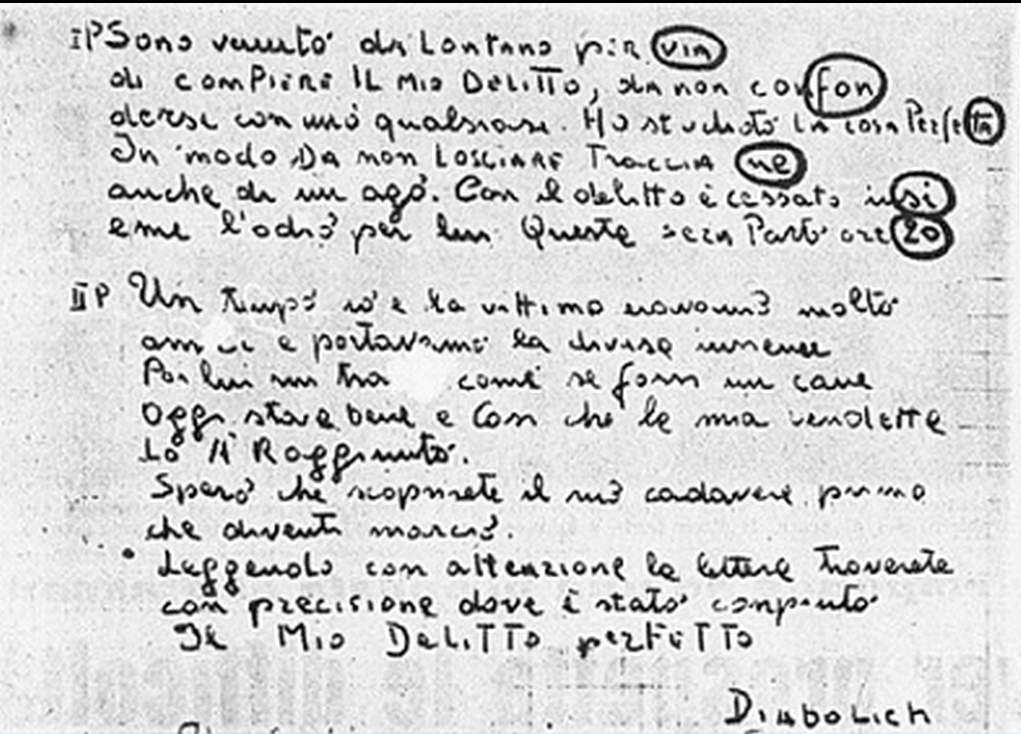 IP Sono venuto da Lontano per via
di comPiere IL Mio DeLiTTo, da non confon
dersi con uno qualsiasi. Ho studiato La cosa Perfe ta
In modo Da non LasciARe TRaccia ne
anche di un ago. Con il delitto è cessato in si
eme l'odio per lui Questa sera Parto ore 20
II P Un tempo io e la vittima eravamo molto
amici e portavamo la divisa insieme
Poi lui mi tra come se fossi un cane
Oggi stava bene e Cosi che la mia vendetta
Lo A Raggiunto.
Spero che scoprirete il suo cadavere prima
che diventi marcio.
Leggendo con attenzione la lettera troverete
con precisione dove è stato compiuto
Il Mio DeLiTTo perfeTTo
DiaboLich